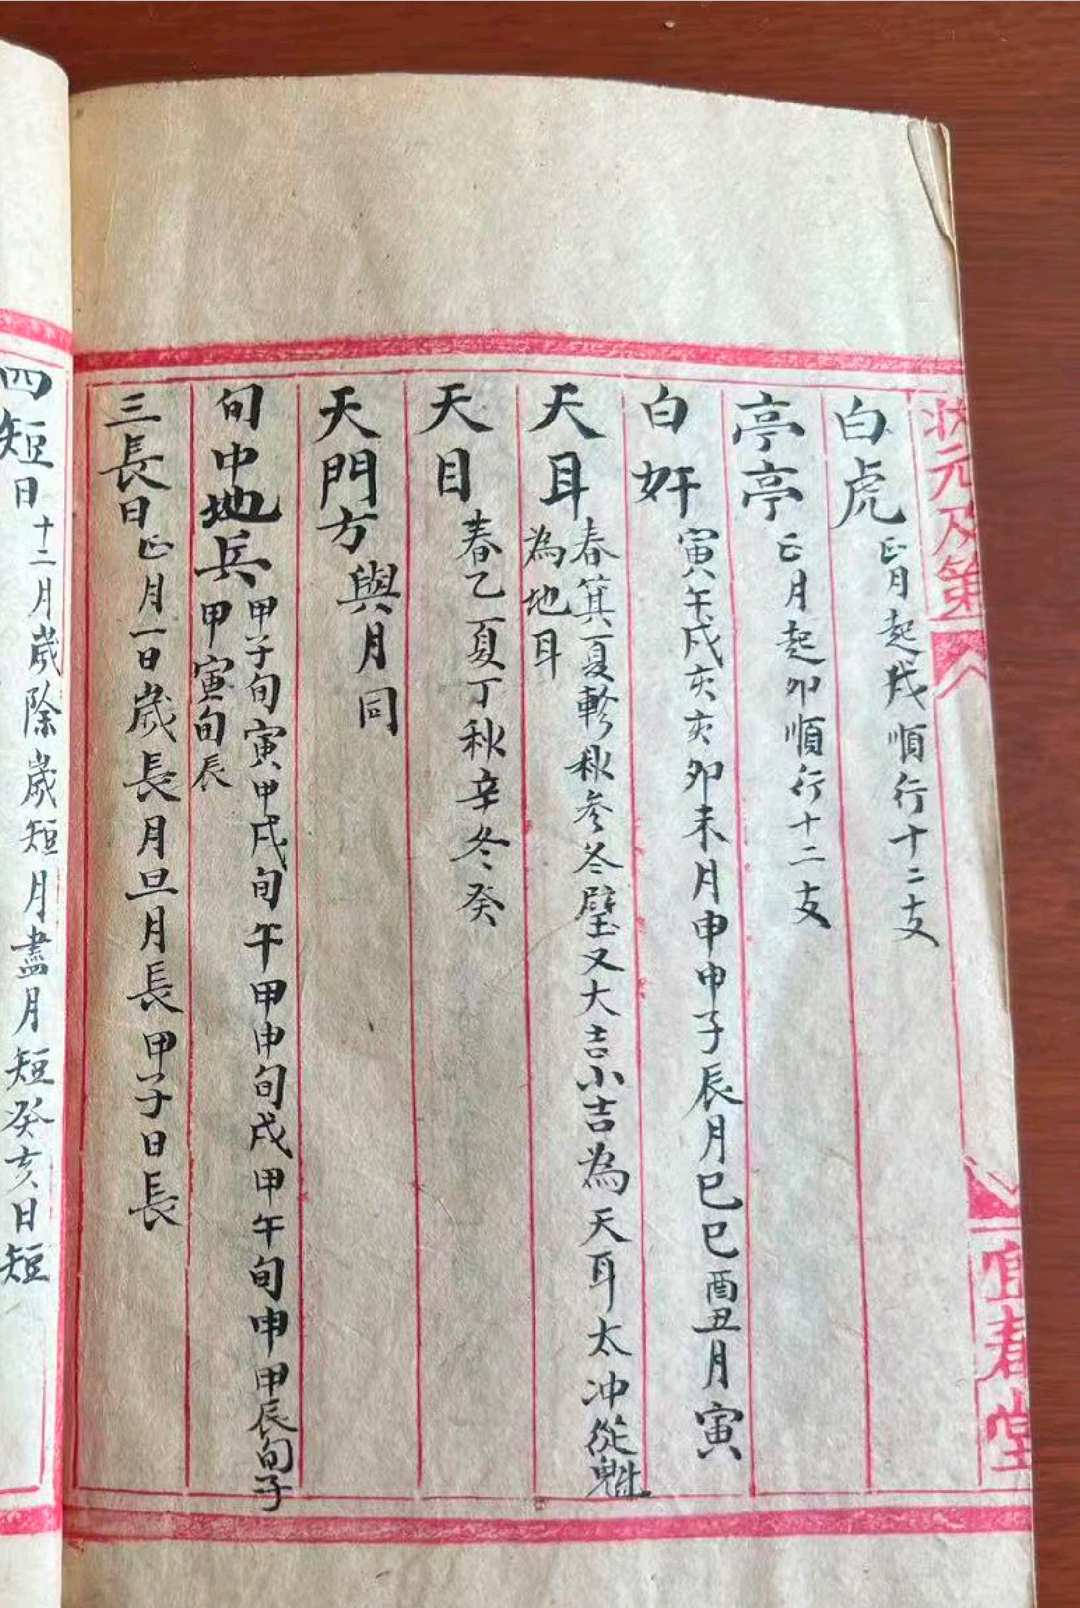 狀元及第
宜春堂
白虎 正月起戌順行十二支
亭亭 正月起卯順行十二支
白奸 寅午戌亥亥卯未月申申子辰月巳巳酉丑月寅
天耳 春箕夏軫秋參冬壁又大吉小吉為天耳太冲從魁
為地耳
天目 春乙夏丁秋辛冬癸
天門方 與月同
旬中地兵 甲子旬寅甲戌旬午甲申旬戌甲午旬申甲辰旬子
甲寅旬辰
三長日 正月一日歲長月旦月長甲子日長
四短日 十二月歲除歲短月盡月短癸亥日短